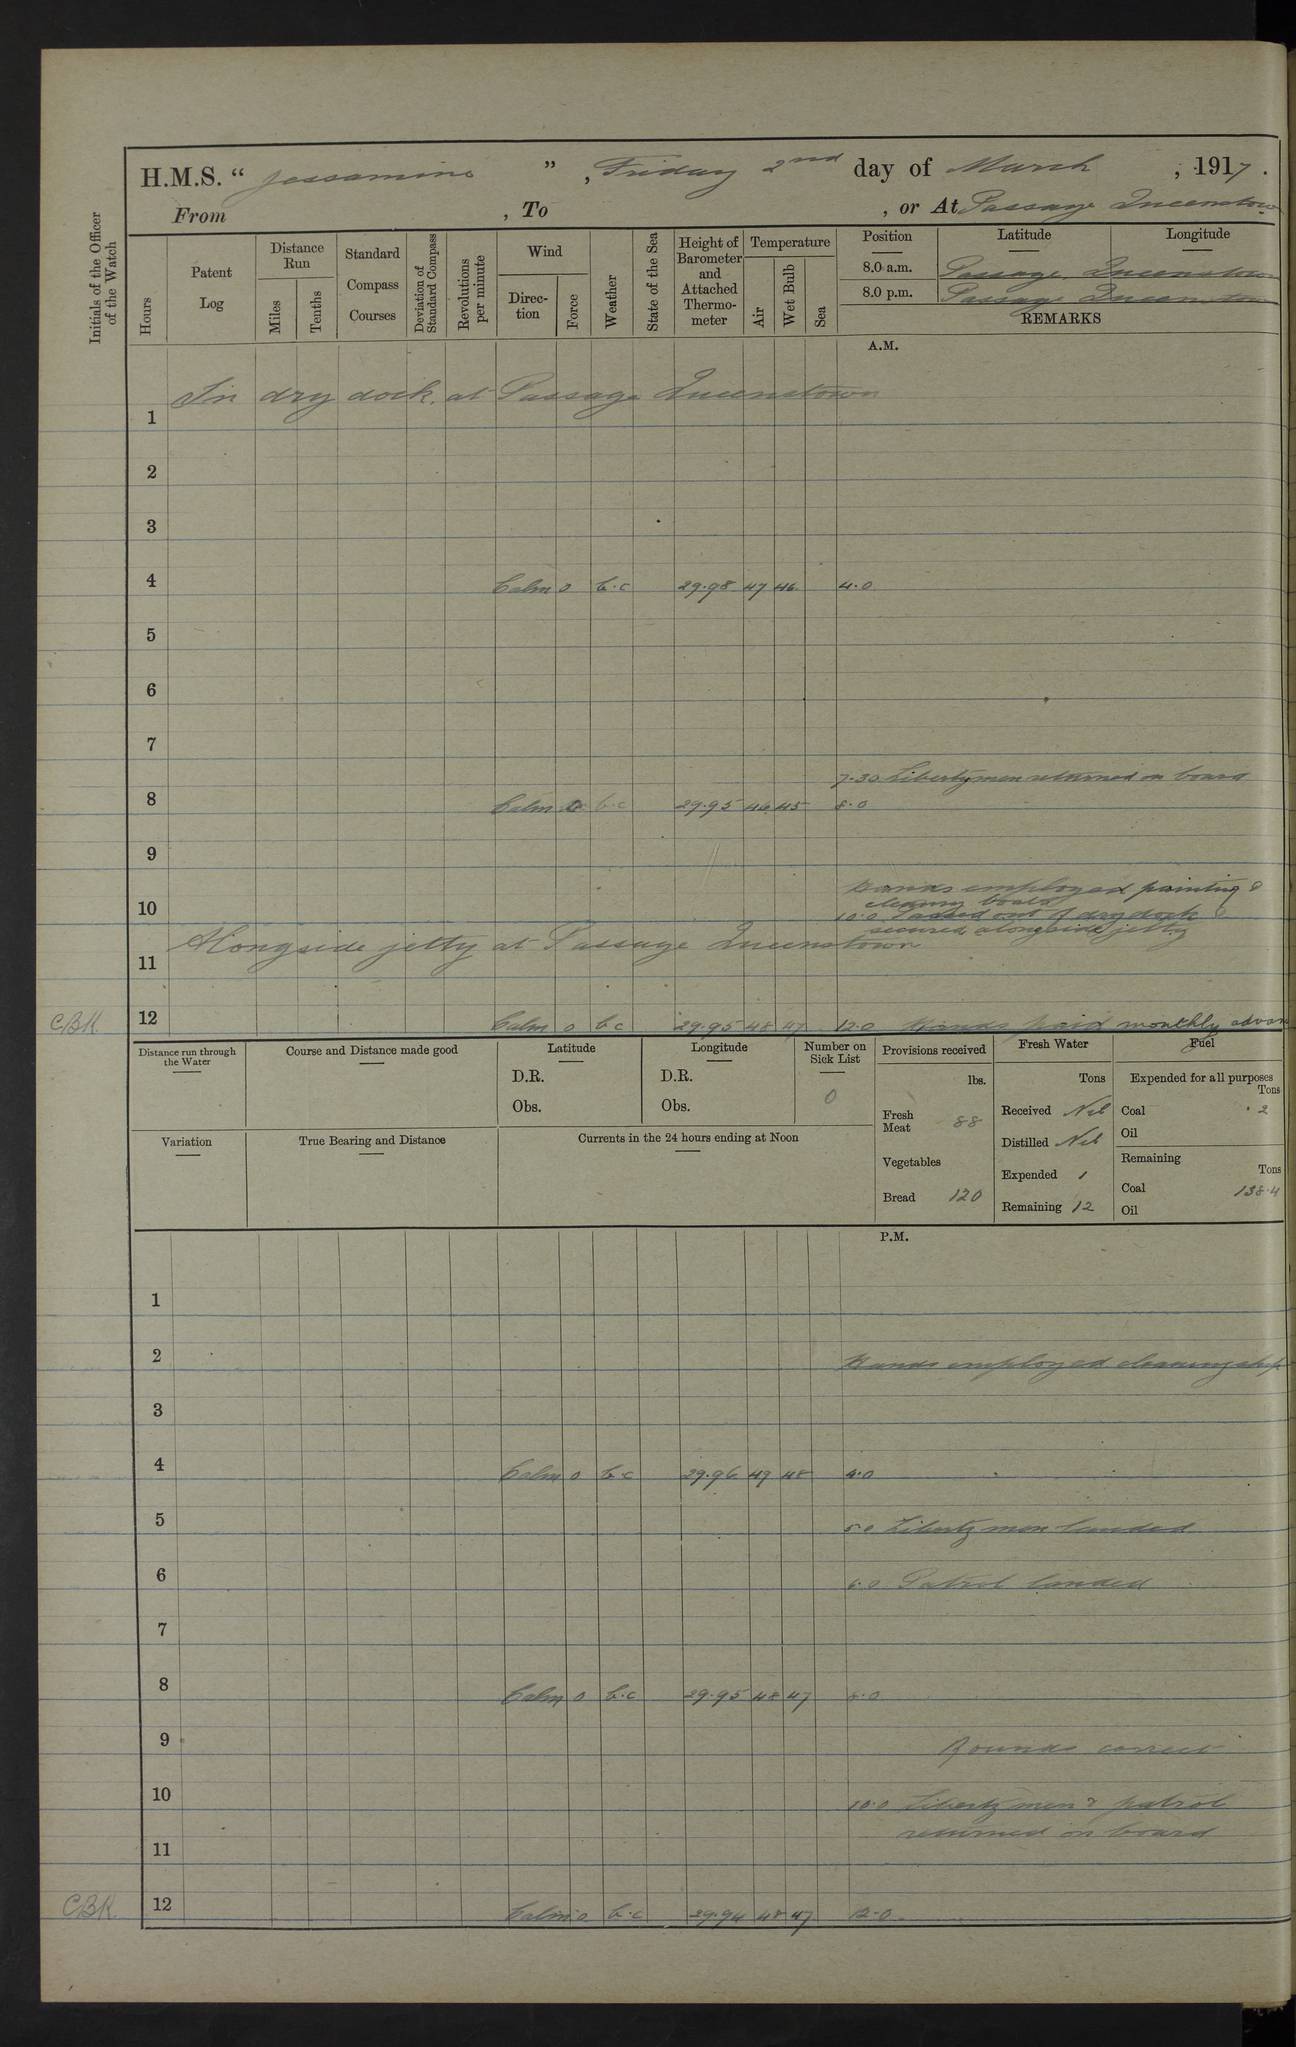 H.M.S. “ Jessamine ”, Friday 2nd day of March, 1917.
From , To , or At Passage Queenstown
Initials of the Officer of the Watch
Hours
Patent Log
Distance Run
Miles
Tenths
Standard Compass Courses
Deviation of Standard Compass
Revolutions per minute
Wind
Direc-tion
Force
Weather
State of the Sea
Height of Barometer and Attached Thermo-meter
Temperature
Air
Wet Bulb
Sea
Position
Latitude
Longitude
8.0 a.m. Passage Queenstown
8.0 p.m. Passage Queenstown
REMARKS
A.M.
In dry dock at Passage Queenstown
1
2
3
4 Calm 0 b.c 29.98 47 46 4.0
5
6
7
7.30 Libertymen returned on board
8 Calm 0 b.c 29.95 46 45 8.0
9
Hands employed painting &
cleaning boats
10 10.0 Passed out of dry dock &
secured alongside jetty
Alongside jetty at Passage Queenstown
11
CBK 12 Calm 0 b c 29.95 48 47 12.0 Hands paid monthly advan
Distance run through the Water
Course and Distance made good
Latitude
D.R.
Obs.
Longitude
D.R.
Obs.
Number on Sick List
0
Provisions received
lbs.
Fresh Meat 88
Vegetables
Bread 120
Fresh Water
Tons
Received Nil
Distilled Nil
Expended 1
Remaining 12
Fuel
Expended for all purposes
Tons
Coal .2
Oil
Remaining
Tons
Coal 138.4
Oil
Variation
True Bearing and Distance
Currents in the 24 hours ending at Noon
P.M.
1
2 Hands employed cleaning ship
3
4 Calm 0 b.c 29.96 49 48 4.0
5 5.0 Liberty men landed
6 6.0 Patrol landed
7
8 Calm 0 b.c 29.95 48 47 8.0
9 Rounds correct
10 10.0 Liberty men & patrol
returned on board
11
CBK. 12 Calm 0 b.c 29.94 48 47 12.0